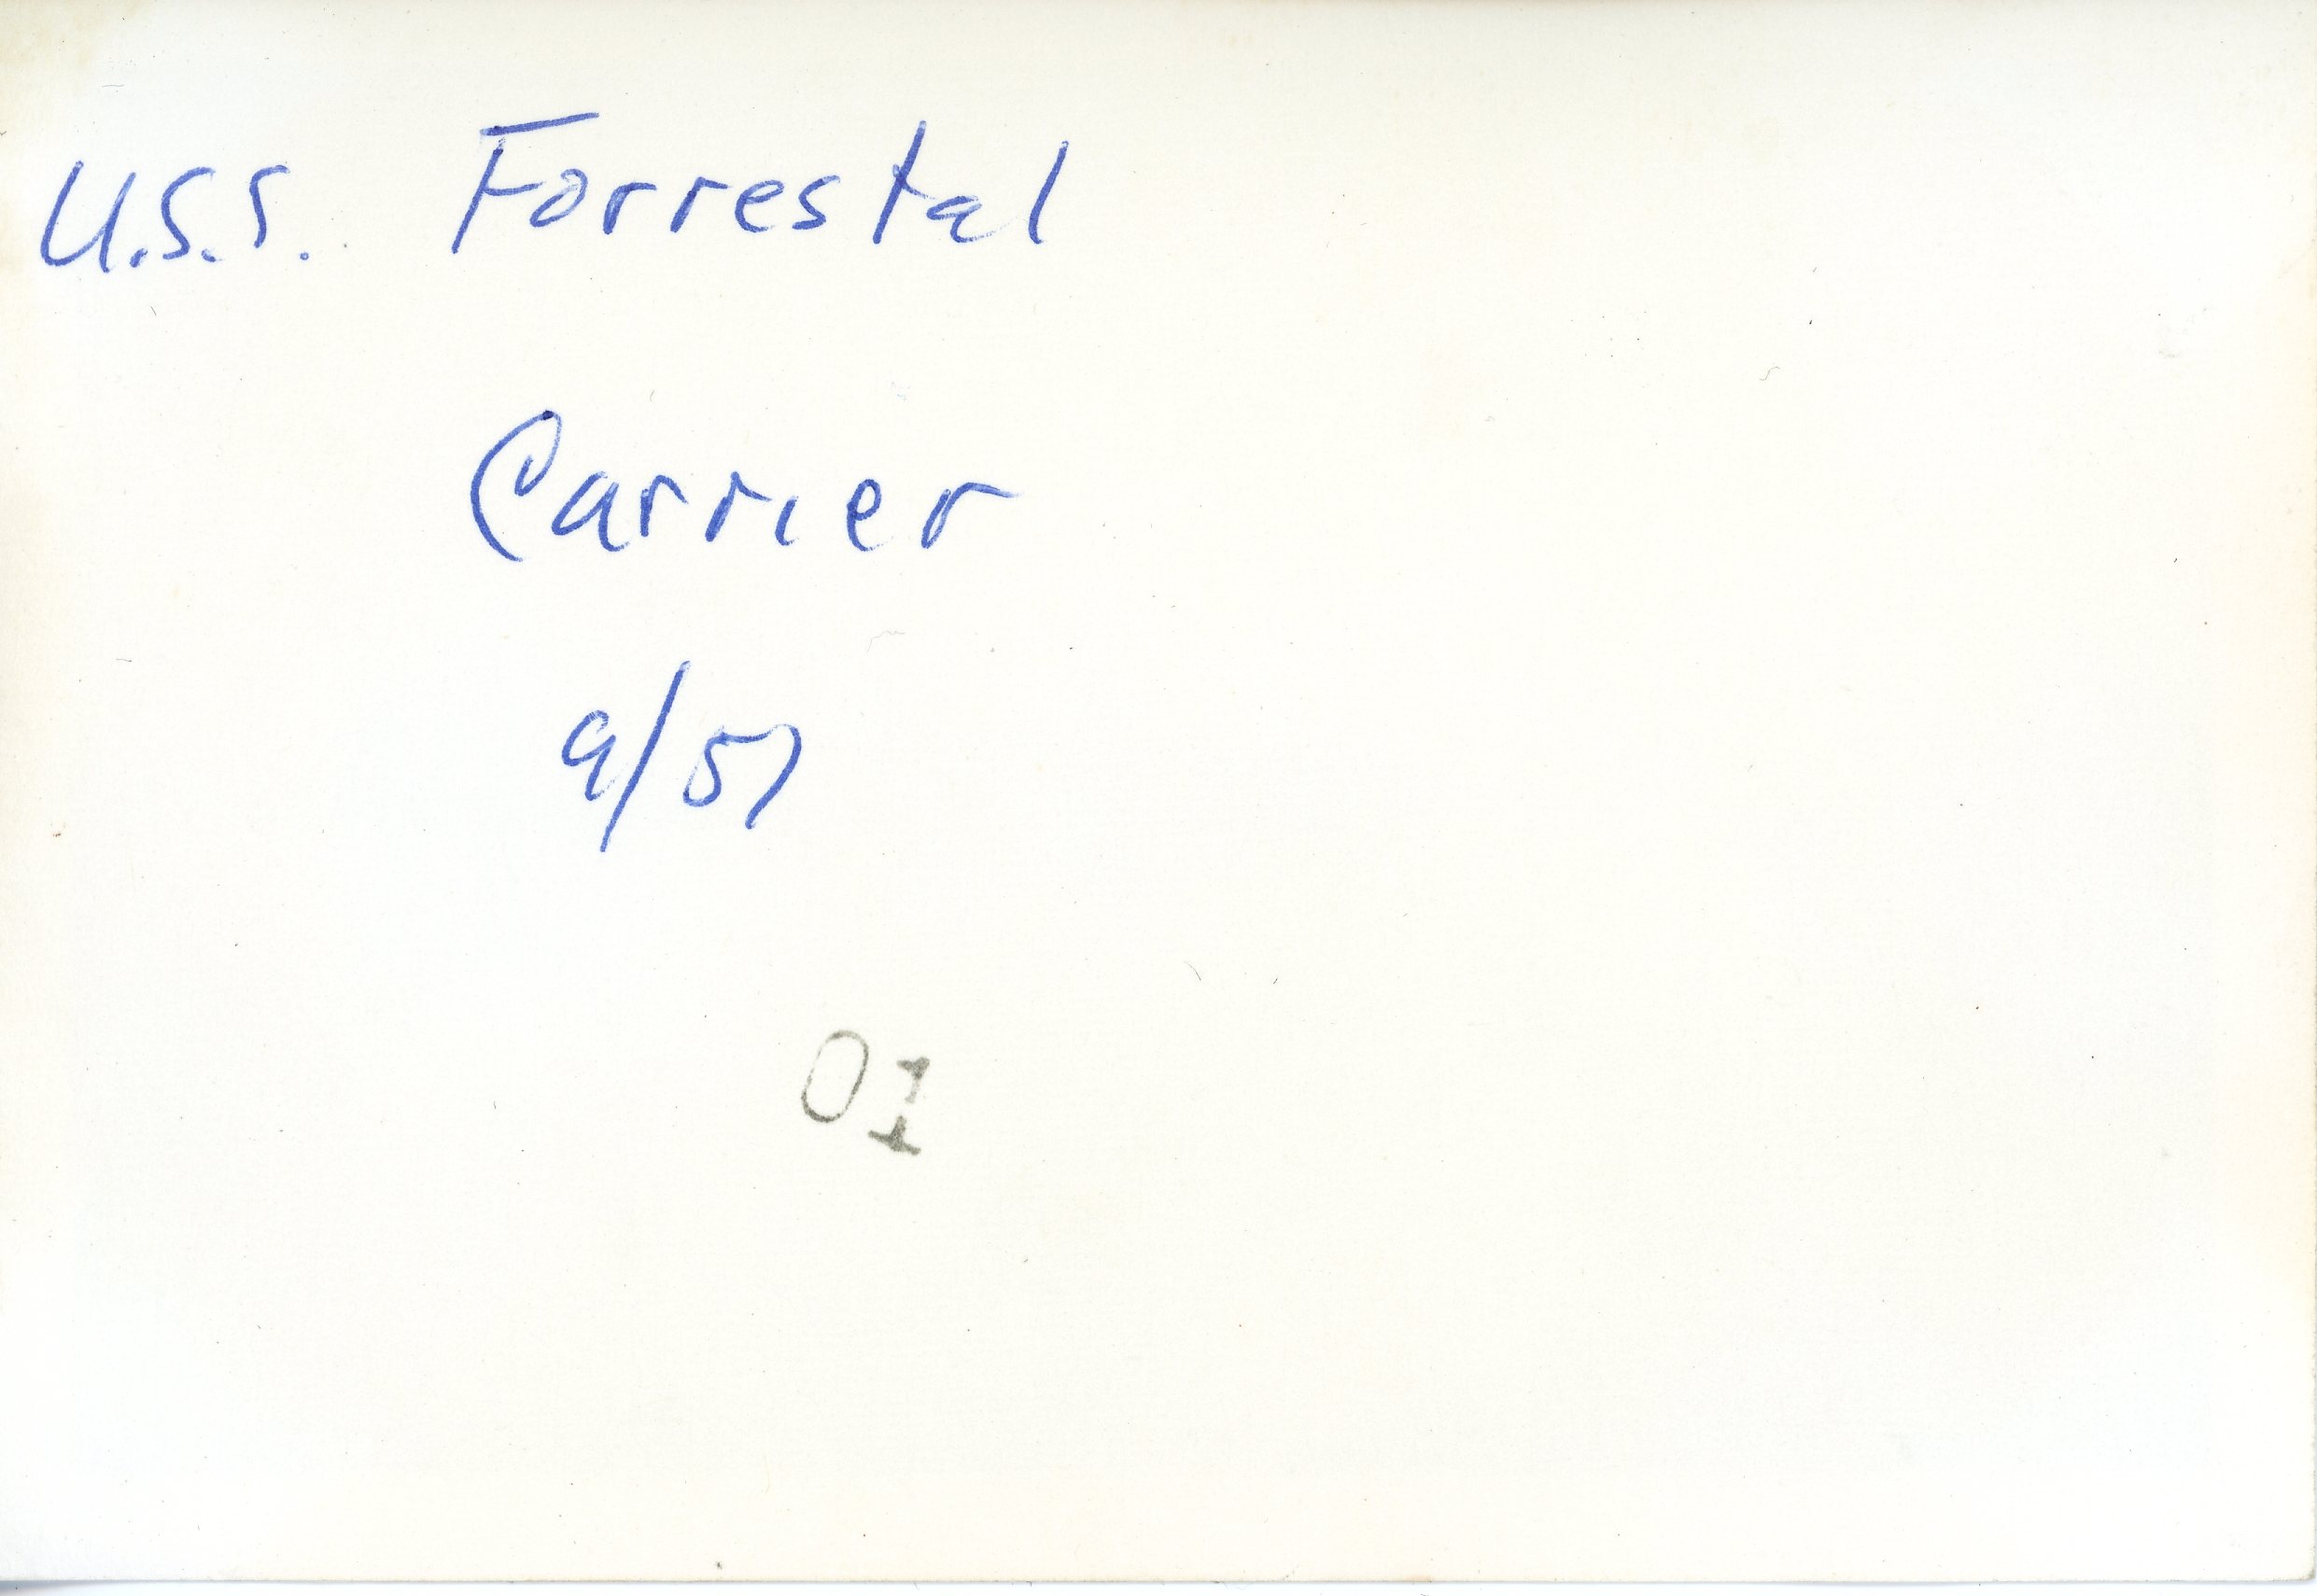 U.S.S. Forrestal
Carrier
9/57
01